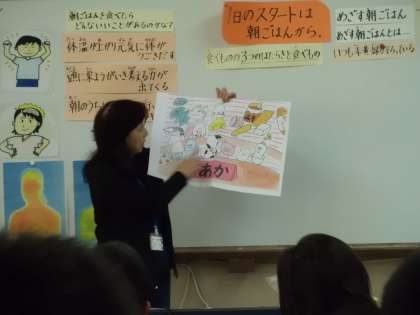 朝ごはんを食べたら
どんないいことがあるのかな?
体温が上がり元気に体が
うごきだす
頭に栄ようがいき考える力が
出てくる
朝のうな
1日のスタートは
朝ごはんから。
食べものの3つのはたらきと食べもの
めざす朝ごはん
めざす朝ごはんとは……
いつも
あか